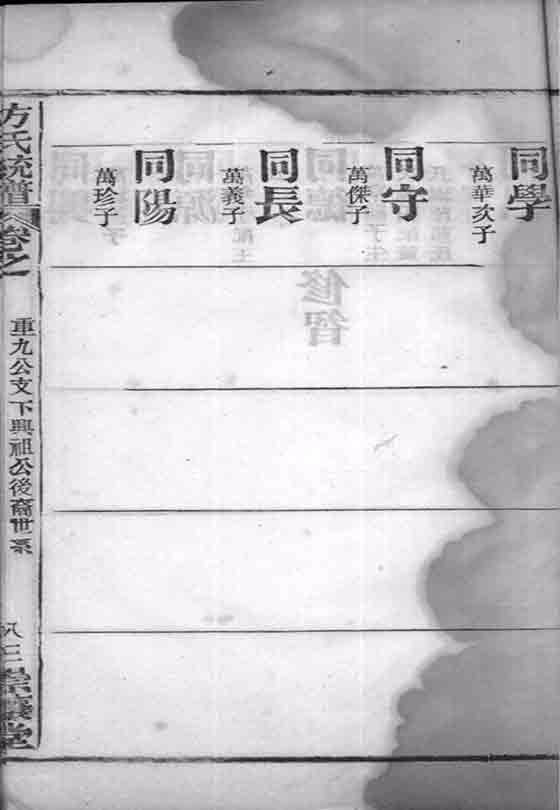 同學
萬華次子
同守
萬傑子
同長
萬義子
同陽
萬珍子
方氏統譜
卷之一
重九公支下興祖公後裔世系
八三
堂